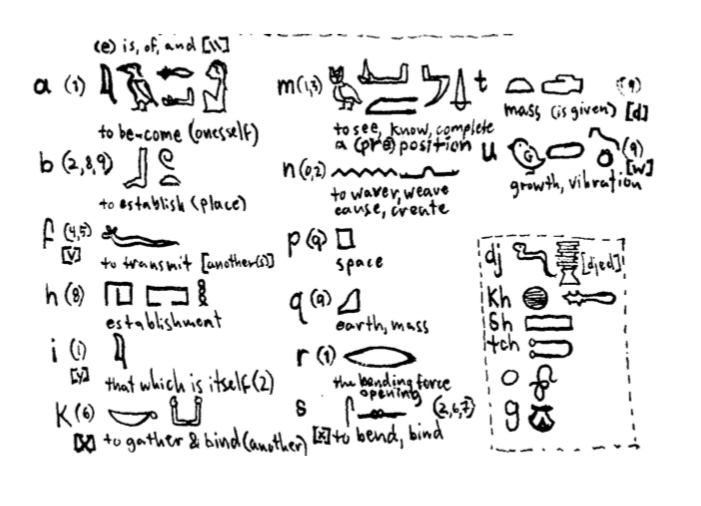 (e) is, of, and [\\]
a (1)
to be-come (onesself)
b (2,8,9)
to establish (place)
f (4,5)
[V]
to transmit [another(s)]
h (8)
establishment
i (1)
[y]
that which is itself (2)
K (6)
[X] to gather & bind (another)
m (1,3)
to see, know, complete
a (pre) position
n (0,2)
to waver, weave
cause, create
p (9)
space
q (9)
earth, mass
r (1)
the bending force
opening
s (2,6,7)
[x] to bend, bind
t (9)
mass (is given) [d]
u (9)
[w]
growth, vibration
dj [djed]
Kh
Sh
tch
o
g